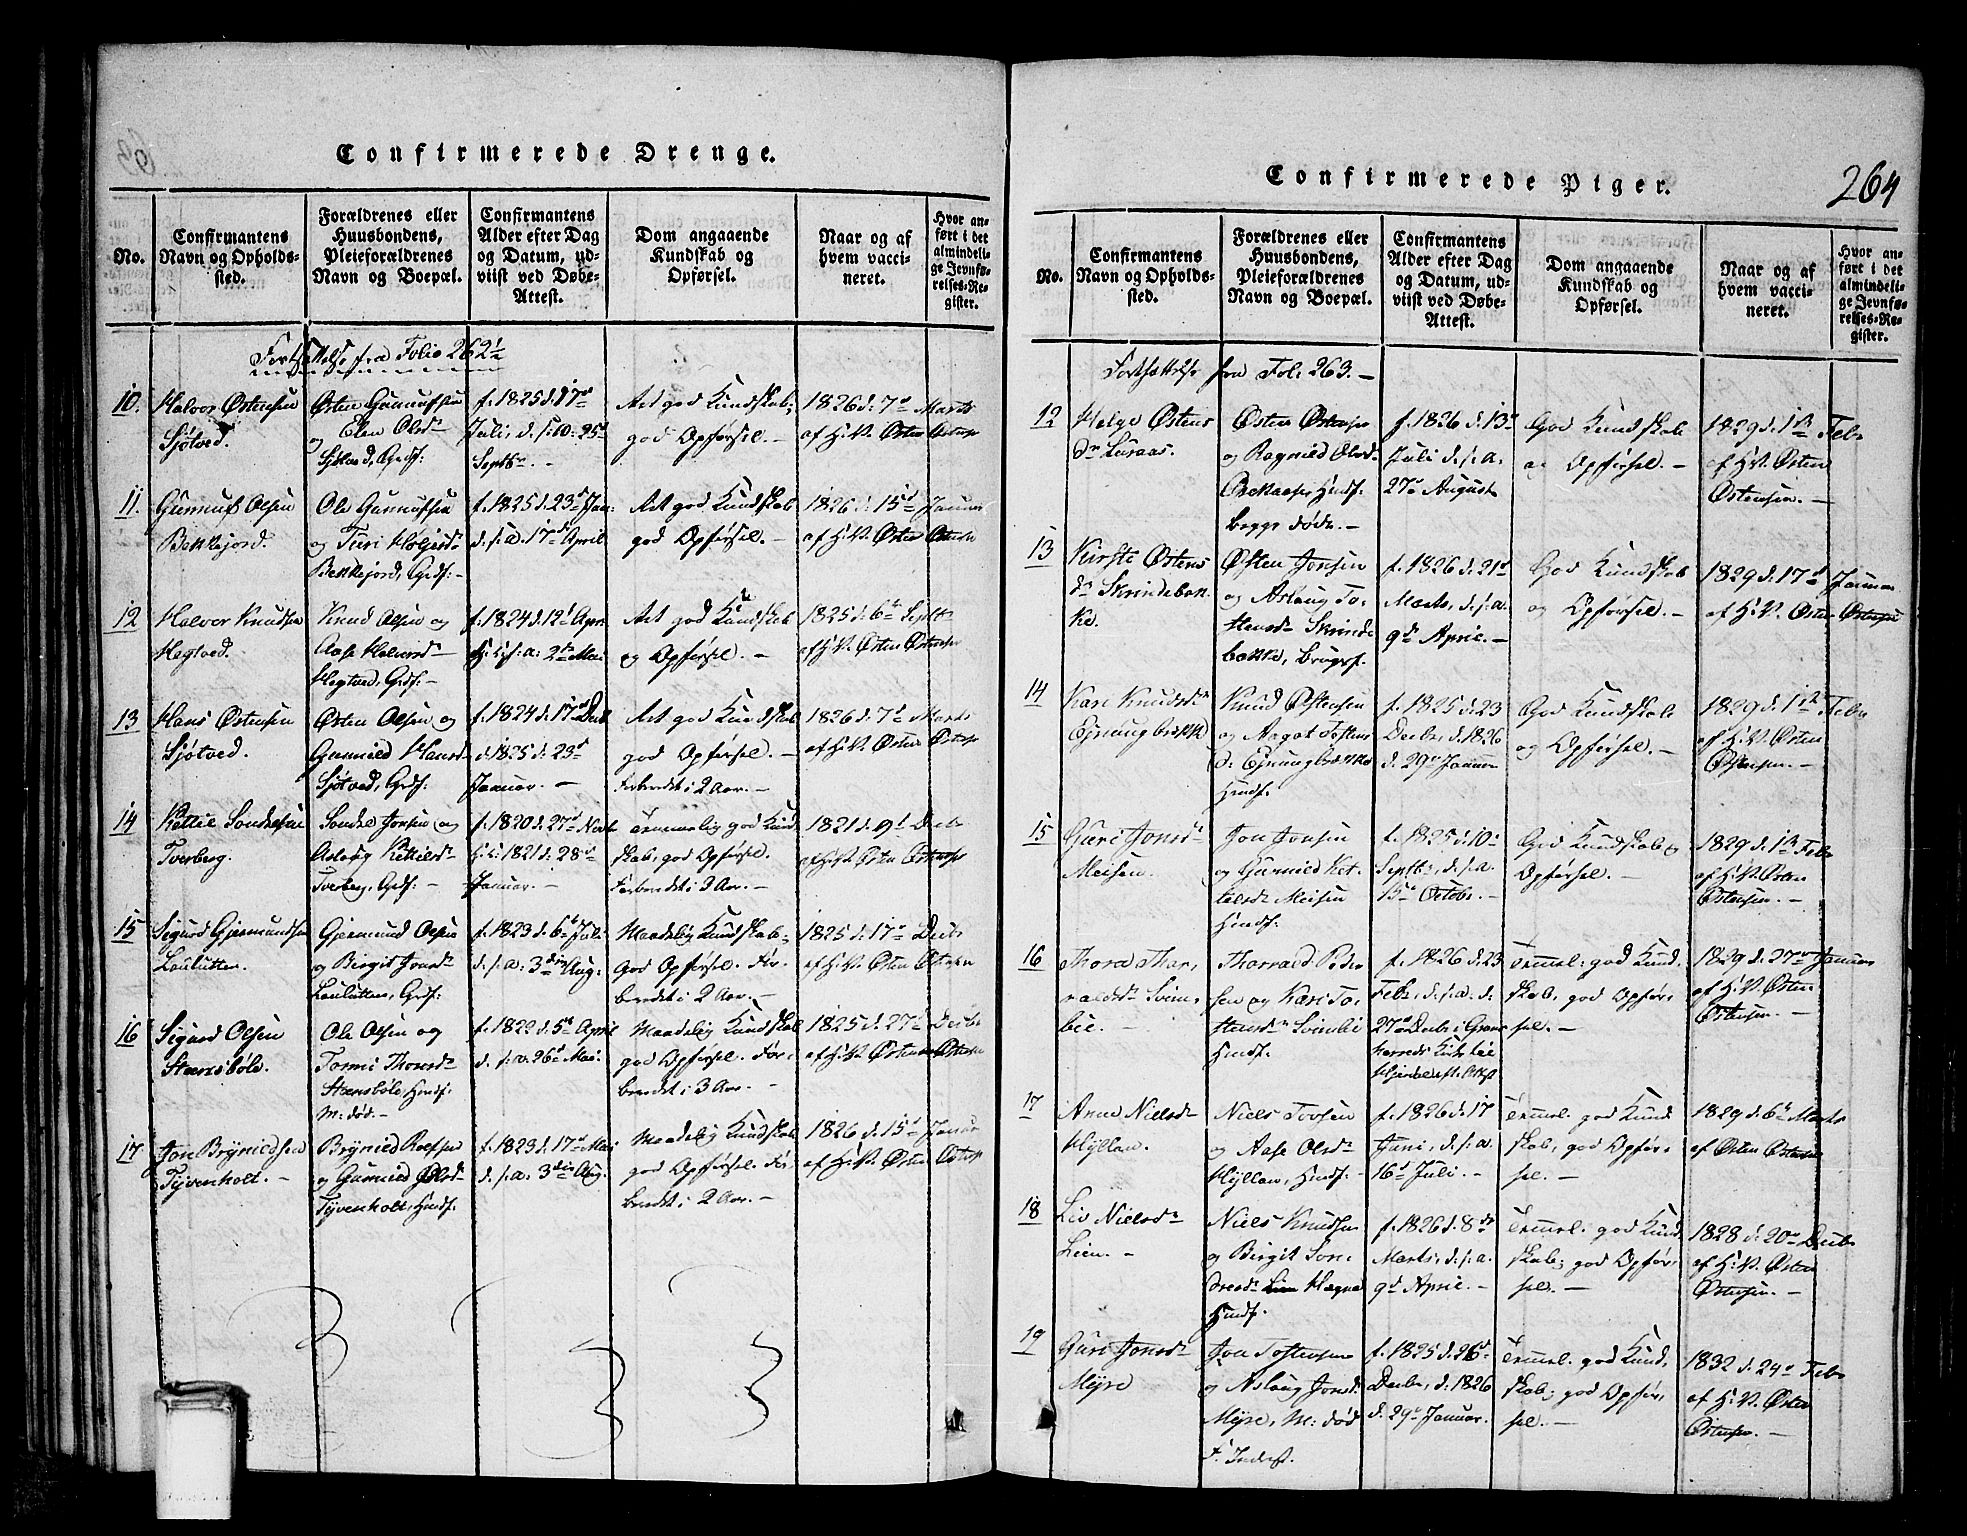 Confirmerede Drenge.
No.
Confirmantens
Navn og Opholds-
sted.
Forældrenes eller
Huusbondens,
Pleieforældrenes
Navn og Boepæl.
Confirmantens
Alder efter Dag
og Datum, ud-
viist ved Døbe-
Attest.
Dom angaaende
Kundskab og
Opførsel.
Naar og af
hvem vacci-
neret.
Hvor an-
ført i det
almindeli-
ge Jevnfø-
relses-Re-
gister.
Fortsættelse fra Folio 262½
10.
Halvor Østensen
Sjøtved.
Østen Gunnufsen
og Elen Olsdr
Sjøtved, Grdf:
f. 1825 d. 17d
Juli, d. s. a. 25d
Septbr. –
Ret god Kundskab,
god Opførsel. –
1826 d: 7d Marts
af H.V. Østen Østensen
11.
Gunnuf Olsen
Bekkejord.
Ole Gunnufsen
og Turi Holjesdr
Bekkejord, Grdf: –
f. 1825 d. 23d Jan:
d. s. a. 17d April
Ret god Kundskab
god Opførsel. –
1826 d: 15d Januar
af H.V. Østen Østensen
12
Halvor Knudsen
Hegtved.
Knud Olsen og
Aase Halvorsdr
Hegtved, Grdf: –
f. 1824 d. 12t Apr:
s. a. 2den Mai
Ret god Kundskab
og Opførsel. –
1825 d: 6te Septb:
af H.V. Østen Østensen
13
Hans Østensen
Sjøtved
Østen Olsen og
Gunnild Hansd
Sjøtved, Grdf:
f. 1824 d. 17d Decb
d. 1825 d. 23d
Januar. –
Ret god Kundskab
god Opførsel. –
Forberedt i 2 Aar. –
1826 d: 7d Marts
af H.V. Østen Østensen
14
Kittil Sondresen
Tverberg.
Sondre Jonsen og
Aslaug Kittilsdr
Tverberg, Grdf: –
f. 1820 d. 27d Novb
1821 d. 28d
Januar. –
Temmelig god Kund
skab, god Opførsel.
Forberedt i 3 Aar. –
1821 d. 9d Decbr
af H.V. Østen Østensen
15
Sigurd Gjermundsen
Loulutten.
Gjermund Olsen
og Birgit Jonsdr
Loulutten, Grdf:
f. 1823 d. 6te Juli
d. s. a. 3die Aug:
Maadelig Kundskab,
God Opførsel. For
beredt i 2 Aar. –
1825 d. 17d Decbr
af H.V. Østen Østensen
16
Sigurd Olsen
Steensbøle.
Ole Olsen og
Steensbøle, Huusf:
M: død. –
f. 1822 d. 5te April
d. s. a. 26d Mai.
Maadelig Kundskab
god Opførsel. For:
beredt i 3 Aar. –
1825 d. 27d Decbr
af H.V. Østen Østensen
17
Jon Brynildsen
Tyvenholt. –
Brynild Rolfsen
og Gunnild Olsd
Tyvenholt, Huusf:
f. 1823 d. 17d Mai
d. s. a. 3die Aug:
Maadelig Kundskab
god Opførsel. For
beredt i 2 Aar. –
1826 d. 15d Januar
af H.V. Østen Østensen
Confirmerede Piger.
264
No.
Confirmantens
Navn og Opholds-
sted.
Forældrenes eller
Huusbondens,
Pleieforældrenes
Navn og Boepæl.
Confirmantens
Alder efter Dag
og Datum, ud-
viist ved Døbe-
Attest.
Dom angaaende
Kundskab og
Opførsel.
Naar og af
hvem vacci-
neret.
Hvor an-
ført i det
almindeli-
ge Jevnfø-
relses-Re-
gister.
Fortsættelse fra Fol: 263. –
12
Helge Østens
dr Luraas.
Østen Østensen
og Ragnild Olsd
Huusf.
begge døde. –
f. 1826 d. 13d
Juli d. s. a.
27d August
God Kundskab
og Opførsel. –
1829 d. 1ste Feb:
af H.V. Østen
Østensen. –
13
Kirste Østens
dr Skrindebæk
ke.
Østen Jonsen
og Aslaug To
stensdr Skrinde
bække, Brugsf.
f. 1826 d. 21d
Marts, d. s. a.
9d April. –
God Kundskab
og Opførsel. –
1829 d. 17d Januar
af H.V. Østen Østensen
14
Kari Knudsdr
Ejnungbrække
Knud Østensen
og Aagot Tosten
dr Ejnungbrække
Huusf.
f. 1825 d. 23
Decbr, d. 1826
d. 29d Januar
God Kundskab
og Opførsel. –
1829 d. 1ste Feb:
af H.V. Østen
Østensen. –
15
Guri Jonsdr
Meisen.
Jon Jonsen
og Gunnild Ket
telsdr Meisen
Huusf:
f. 1825 d. 10d
Septb:, d. s. a.
15d Octobr. –
God Kundskab og
Opførsel. –
1829 d. 1ste Feb:
af H.V. Østen
Østensen. –
16
Thora Thor,
valdsdr Svins
lie. –
Thorvald Peder
sen og Kari To
stensdr Svinslie
Huusf.
f. 1826 d. 23
Feb:, d. s. a. d.
27d Decbr i Grans
herreds Kirke
Temmel: god Kund
skab, god Opfør,
sel. –
1829 d. 27d Januar
af H.V. Østen
Østensen. –
17
Anne Nielsdr
Hyllan.
Niels Torsen
og Aase Olsdr
Hyllan, Huusf: –
f. 1826 d. 17
Juni, d. s. a.
16d Juli. –
Temmel: god Kund
skab, god Opfør,
sel. –
1829 d. 6te Marts
af Østen Østensen
18
Liv Nielsdr
Lien. –
Niels Knudsen
og Birgit Son,
dresdr Hægna
Huusf.
f. 1826 d. 8de
Marts, d. s. a.
9d April. –
Temmel: god Kund
skab, god Opfør,
sel. –
1828 d. 20d Decbr
af H.V. Østen
Østensen. –
19
Guri Jonsdr
Myre
Jon Tostensen
og Aslaug Jonsdr
Myre, M: død
f. 1825 d. 26d
Decbr, d. 1826
d. 29d Januar.
Temmel: god Kund,
skab, god Opfør,
sel. –
1832 d. 24d Feb:
af H.V. Østen
Østensen. –